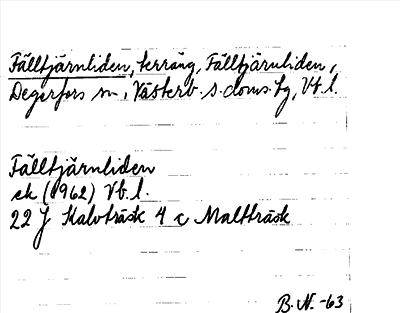 Fälltjärnliden, terräng, Fälltjärnliden,
Degerfors sn, Västerb. s. doms. lg, Vb. l.
Fälltjärnliden
ek (1962) Vb. l.
22 J Kalvträsk 4 c Maltträsk
B. N. -63